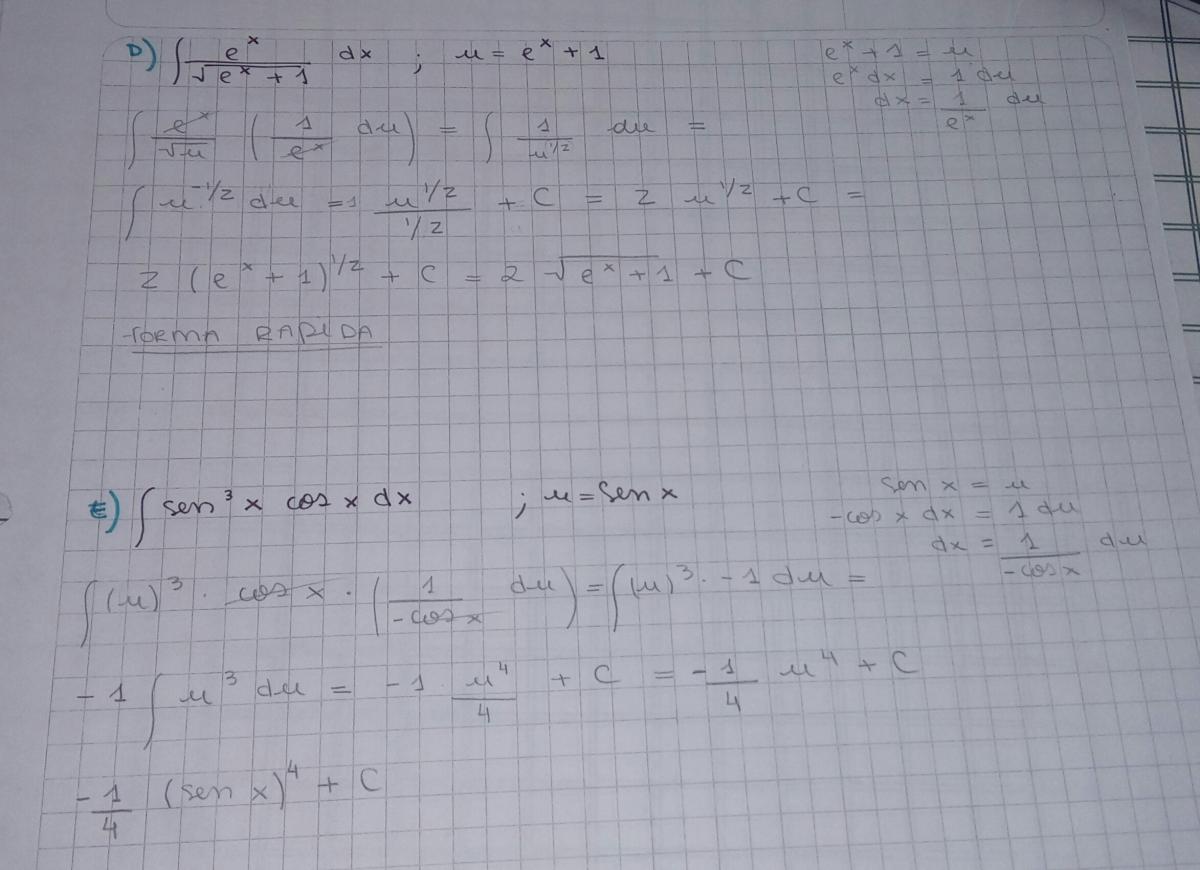 D) ∫ e^x / √(e^x + 1) dx ; u = e^x + 1
e^x + 1 = u
e^x dx = 1 du
dx = 1/e^x du
∫ e^x/√u (1/e^x du) = ∫ 1/u^1/2 du =
∫ u^-1/2 du = 1 u^1/2 / 1/2 + C = 2 u^1/2 + C =
2 (e^x + 1)^1/2 + C = 2 √(e^x + 1) + C
FORMA RAPIDA
E) ∫ sen³ x cos x dx ; u = sen x
sen x = u
-cos x dx = 1 du
dx = 1/-cos x du
∫ (u)³ · cos x · (1/-cos x du) = ∫ (u)³ · -1 du =
-1 ∫ u³ du = -1 · u⁴/4 + C = -1/4 u⁴ + C
-1/4 (sen x)⁴ + C